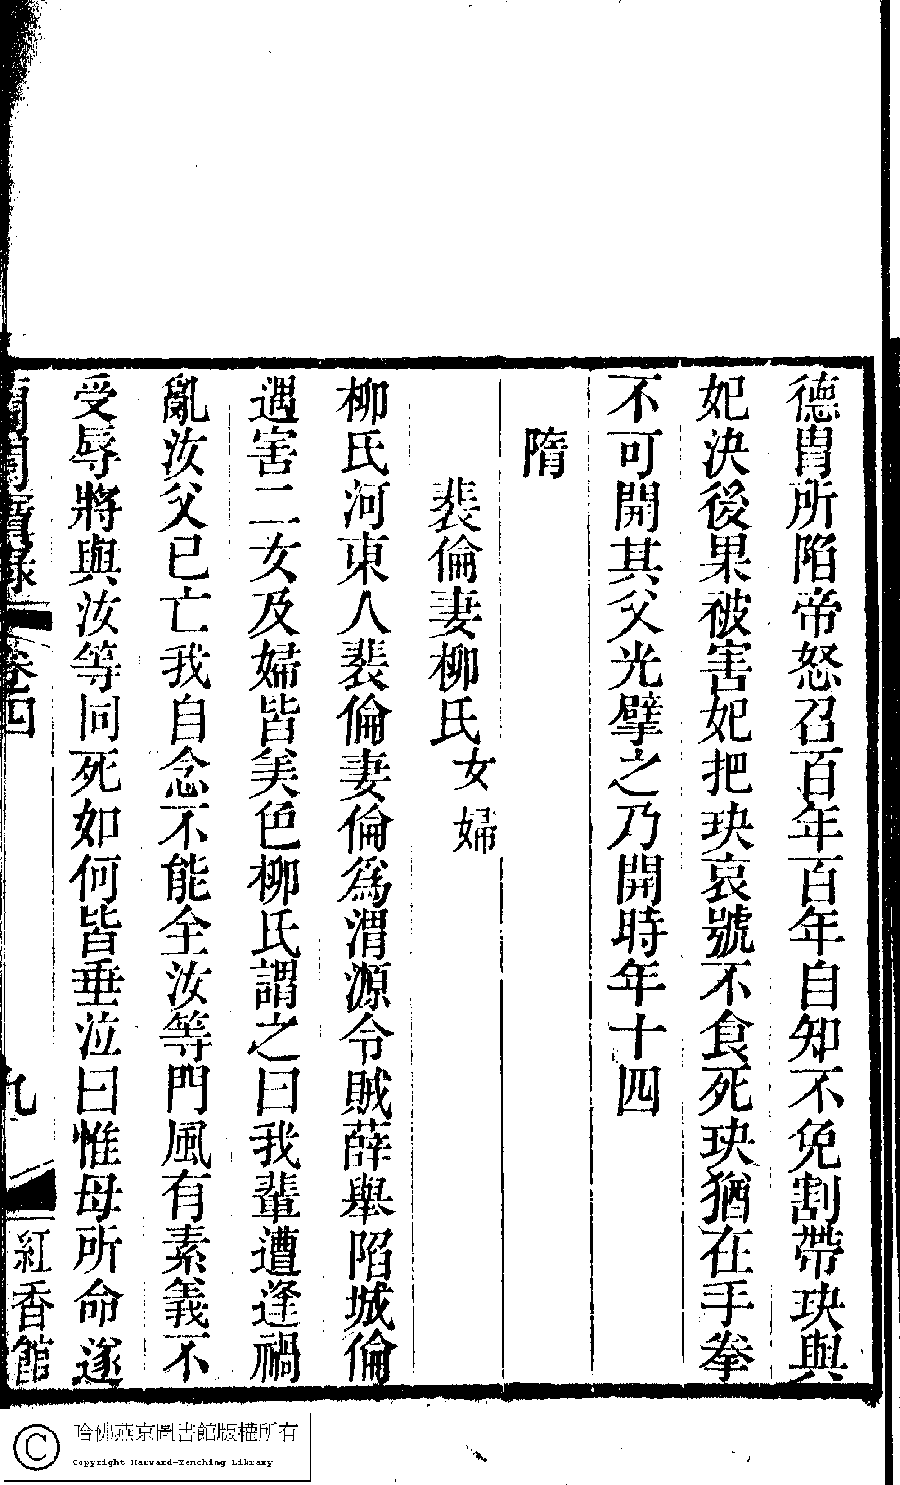 德胄所陷帝怒召百年百年自知不免割帶玦與
妃決後果被害妃把玦哀號不食死玦猶在手拳
不可開其父光擘之乃開時年十四
隋
裴倫妻柳氏女婦
柳氏河東人裴倫妻倫爲渭源令賊薛舉陷城倫
遇害二女及婦皆美色柳氏謂之曰我輩遭逢禍
亂汝父已亡我自念不能全汝等門風有素義不
受辱將與汝等同死如何皆垂泣曰惟母所命遂
蘭閨寶錄
卷四
九
紅香館
哈佛燕京圖書館版權所有
Copyright Harvard-Yenching Library